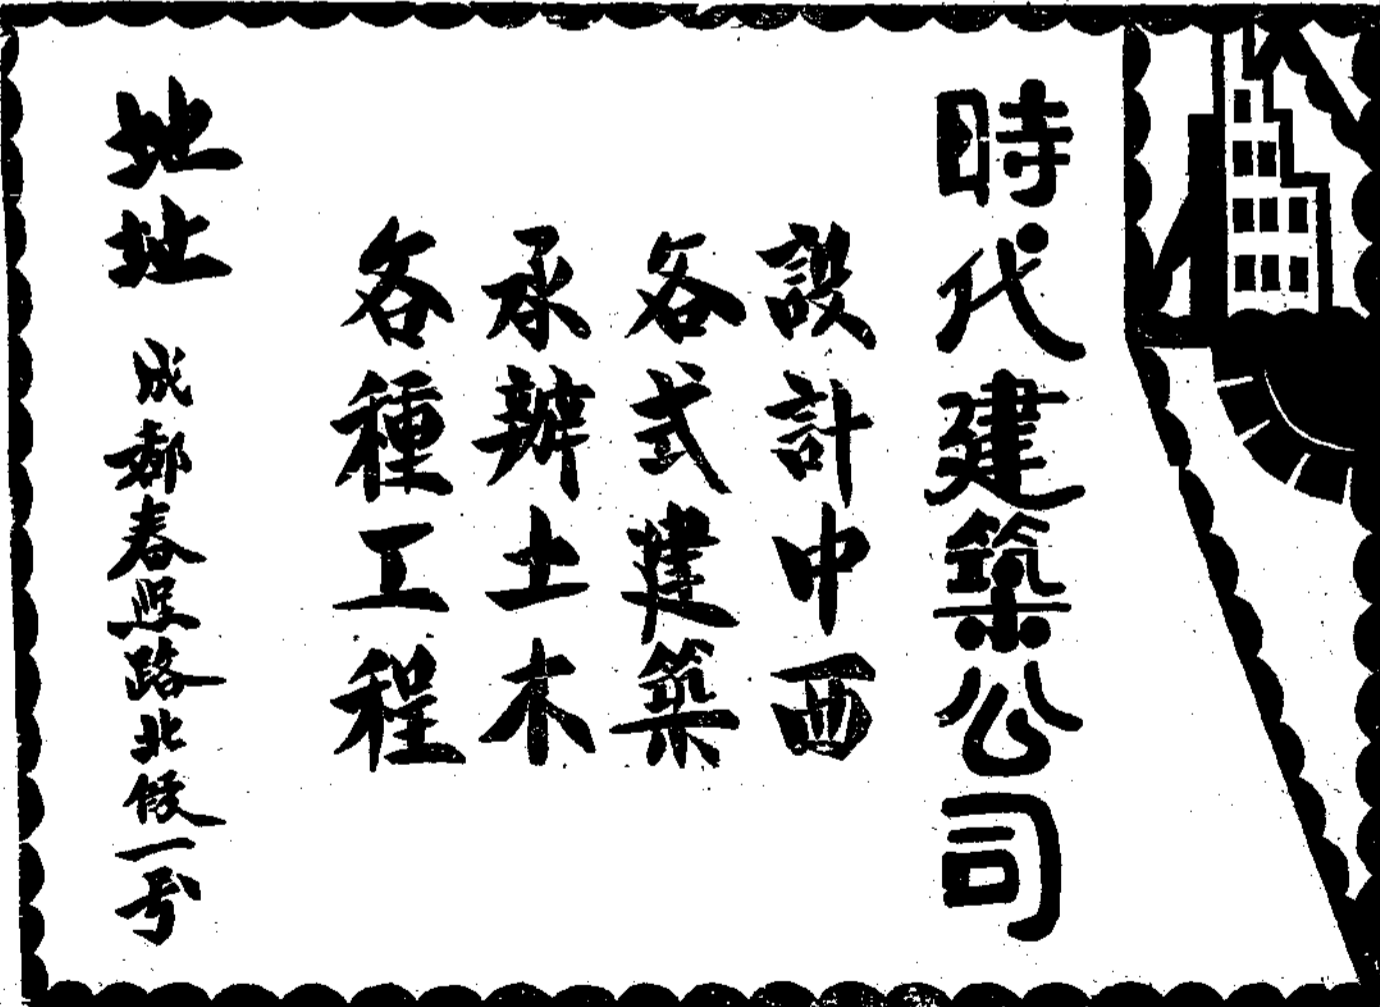 時代建築公司
設計中西
各式建築
承辦土木
各種工程
地址 成都春熙路北段一号